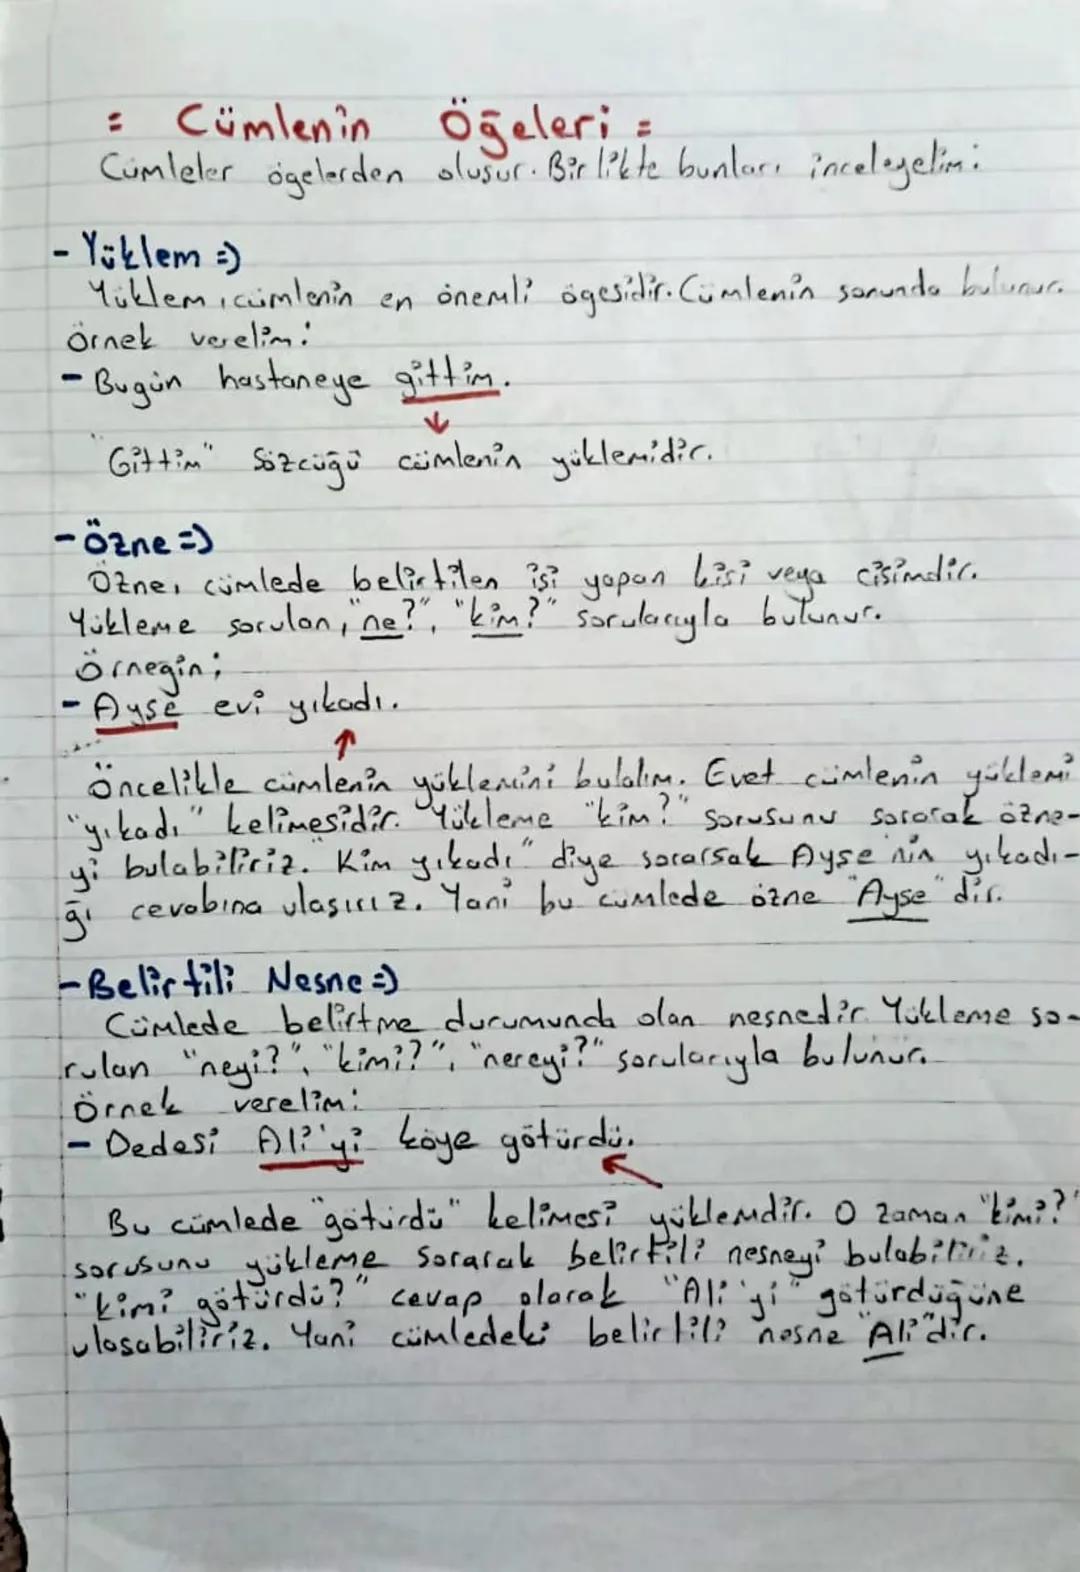 = Cümlenin Öğeleri =
Cümleler ögelerden oluşur. Birlikte bunları inceleyelim:
- Yüklem =)
Yüklem, cümlenin en önemli ögesidir. Cümlenin sonunda bulunur.
Örnek verelim:
- Bugün hastaneye gittim.
↓
"Gittim" sözcüğü cümlenin yüklemidir.
- Özne =)
Özne, cümlede belirtilen işi yapan kişi veya cisimdir.
Yükleme sorulan, "ne?", "kim?" sorularıyla bulunur.
Örneğin;
- Ayşe evi yıkadı.
↑
Öncelikle cümlenin yüklemini bulalım. Evet cümlenin yüklemi
"yıkadı" kelimesidir. Yükleme "kim?" sorusunu sorarak özne-
yi bulabiliriz. "Kim yıkadı" diye sorarsak Ayşe'nin yıkadı-
ğı cevabına ulaşırız. Yani bu cümlede özne "Ayşe" dir.
- Belirtili Nesne =)
Cümlede belirtme durumunda olan nesnedir. Yükleme so-
rulan "neyi?", "kimi?", "nereyi?" sorularıyla bulunur.
Örnek verelim:
- Dedesi Ali'yi köye götürdü.
Bu cümlede "götürdü" kelimesi yüklemdir. O zaman "kimi?"
sorusunu yükleme sorarak belirtili nesneyi bulabiliriz.
"kimi götürdü?" cevap olarak "Ali'yi" götürdüğüne
ulaşabiliriz. Yani cümledeki belirtili nesne "Ali"dir.